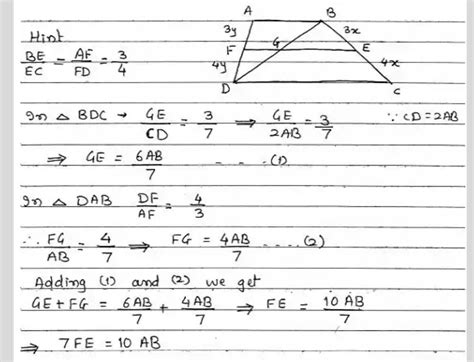 A B
3y 3x
Hint
F G E
BE/EC = AF/FD = 3/4
4y 4x
D C
In △ BDC → GE/CD = 3/7 ⇒ GE/2AB = 3/7 ∵ CD = 2AB
⇒ GE = 6AB/7 - - - (1)
In △ DAB DF/AF = 4/3
∴ FG/AB = 4/7 ⇒ FG = 4AB/7 ..... (2)
Adding (1) and (2) we get
GE + FG = 6AB/7 + 4AB/7 ⇒ FE = 10 AB/7
⇒ 7FE = 10 AB